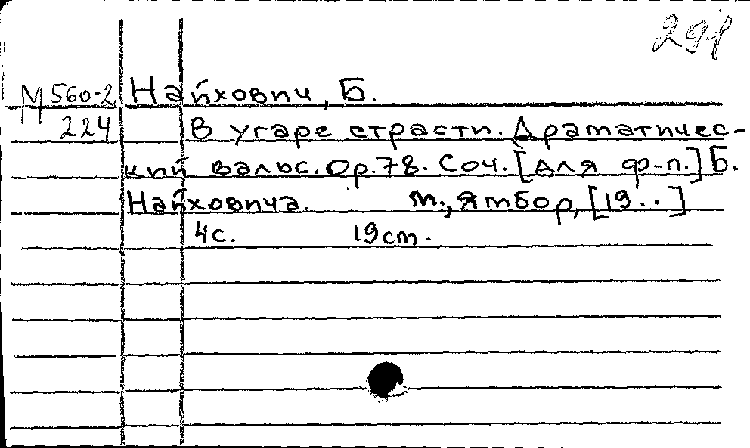 291
М560-2 Найхович, Б.
224 В угаре страсти. Драматичес-
кий вальс. Op.78. Соч. [для ф-п.] Б.
Найховича. М., Ямбор, [19..]
4с. 19см.